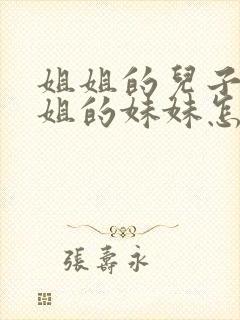 姐姐的兒子
姐的妹妹怎
張壽永